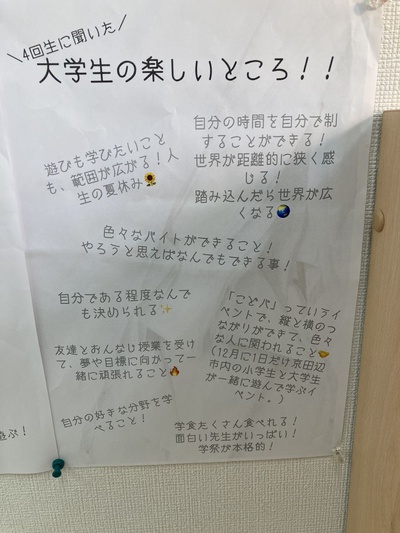 ＼4回生に聞いた／
大学生の楽しいところ！！
自分の時間を自分で制
することができる！
世界が距離的に狭く感
じる！
踏み込んだら世界が広
くなる🌏
遊びも学びたいこと
も、範囲が広がる！人
生の夏休み🌻
色々なバイトができること！
やろうと思えばなんでもできる事！
自分である程度なんで
も決められる✨
「こどパ」っていうイ
ベントで、縦と横のつ
ながりができて、色々
な人に関われること🤝
（12月に1日だけ京田辺
市内の小学生と大学生
が一緒に遊んで学ぶイ
ベント。）
友達とおんなじ授業を受け
て、夢や目標に向かって一
緒に頑張れること🔥
自分の好きな分野を学
べること！
学食たくさん食べれる！
面白い先生がいっぱい！
学祭が本格的！
遊ぶ！